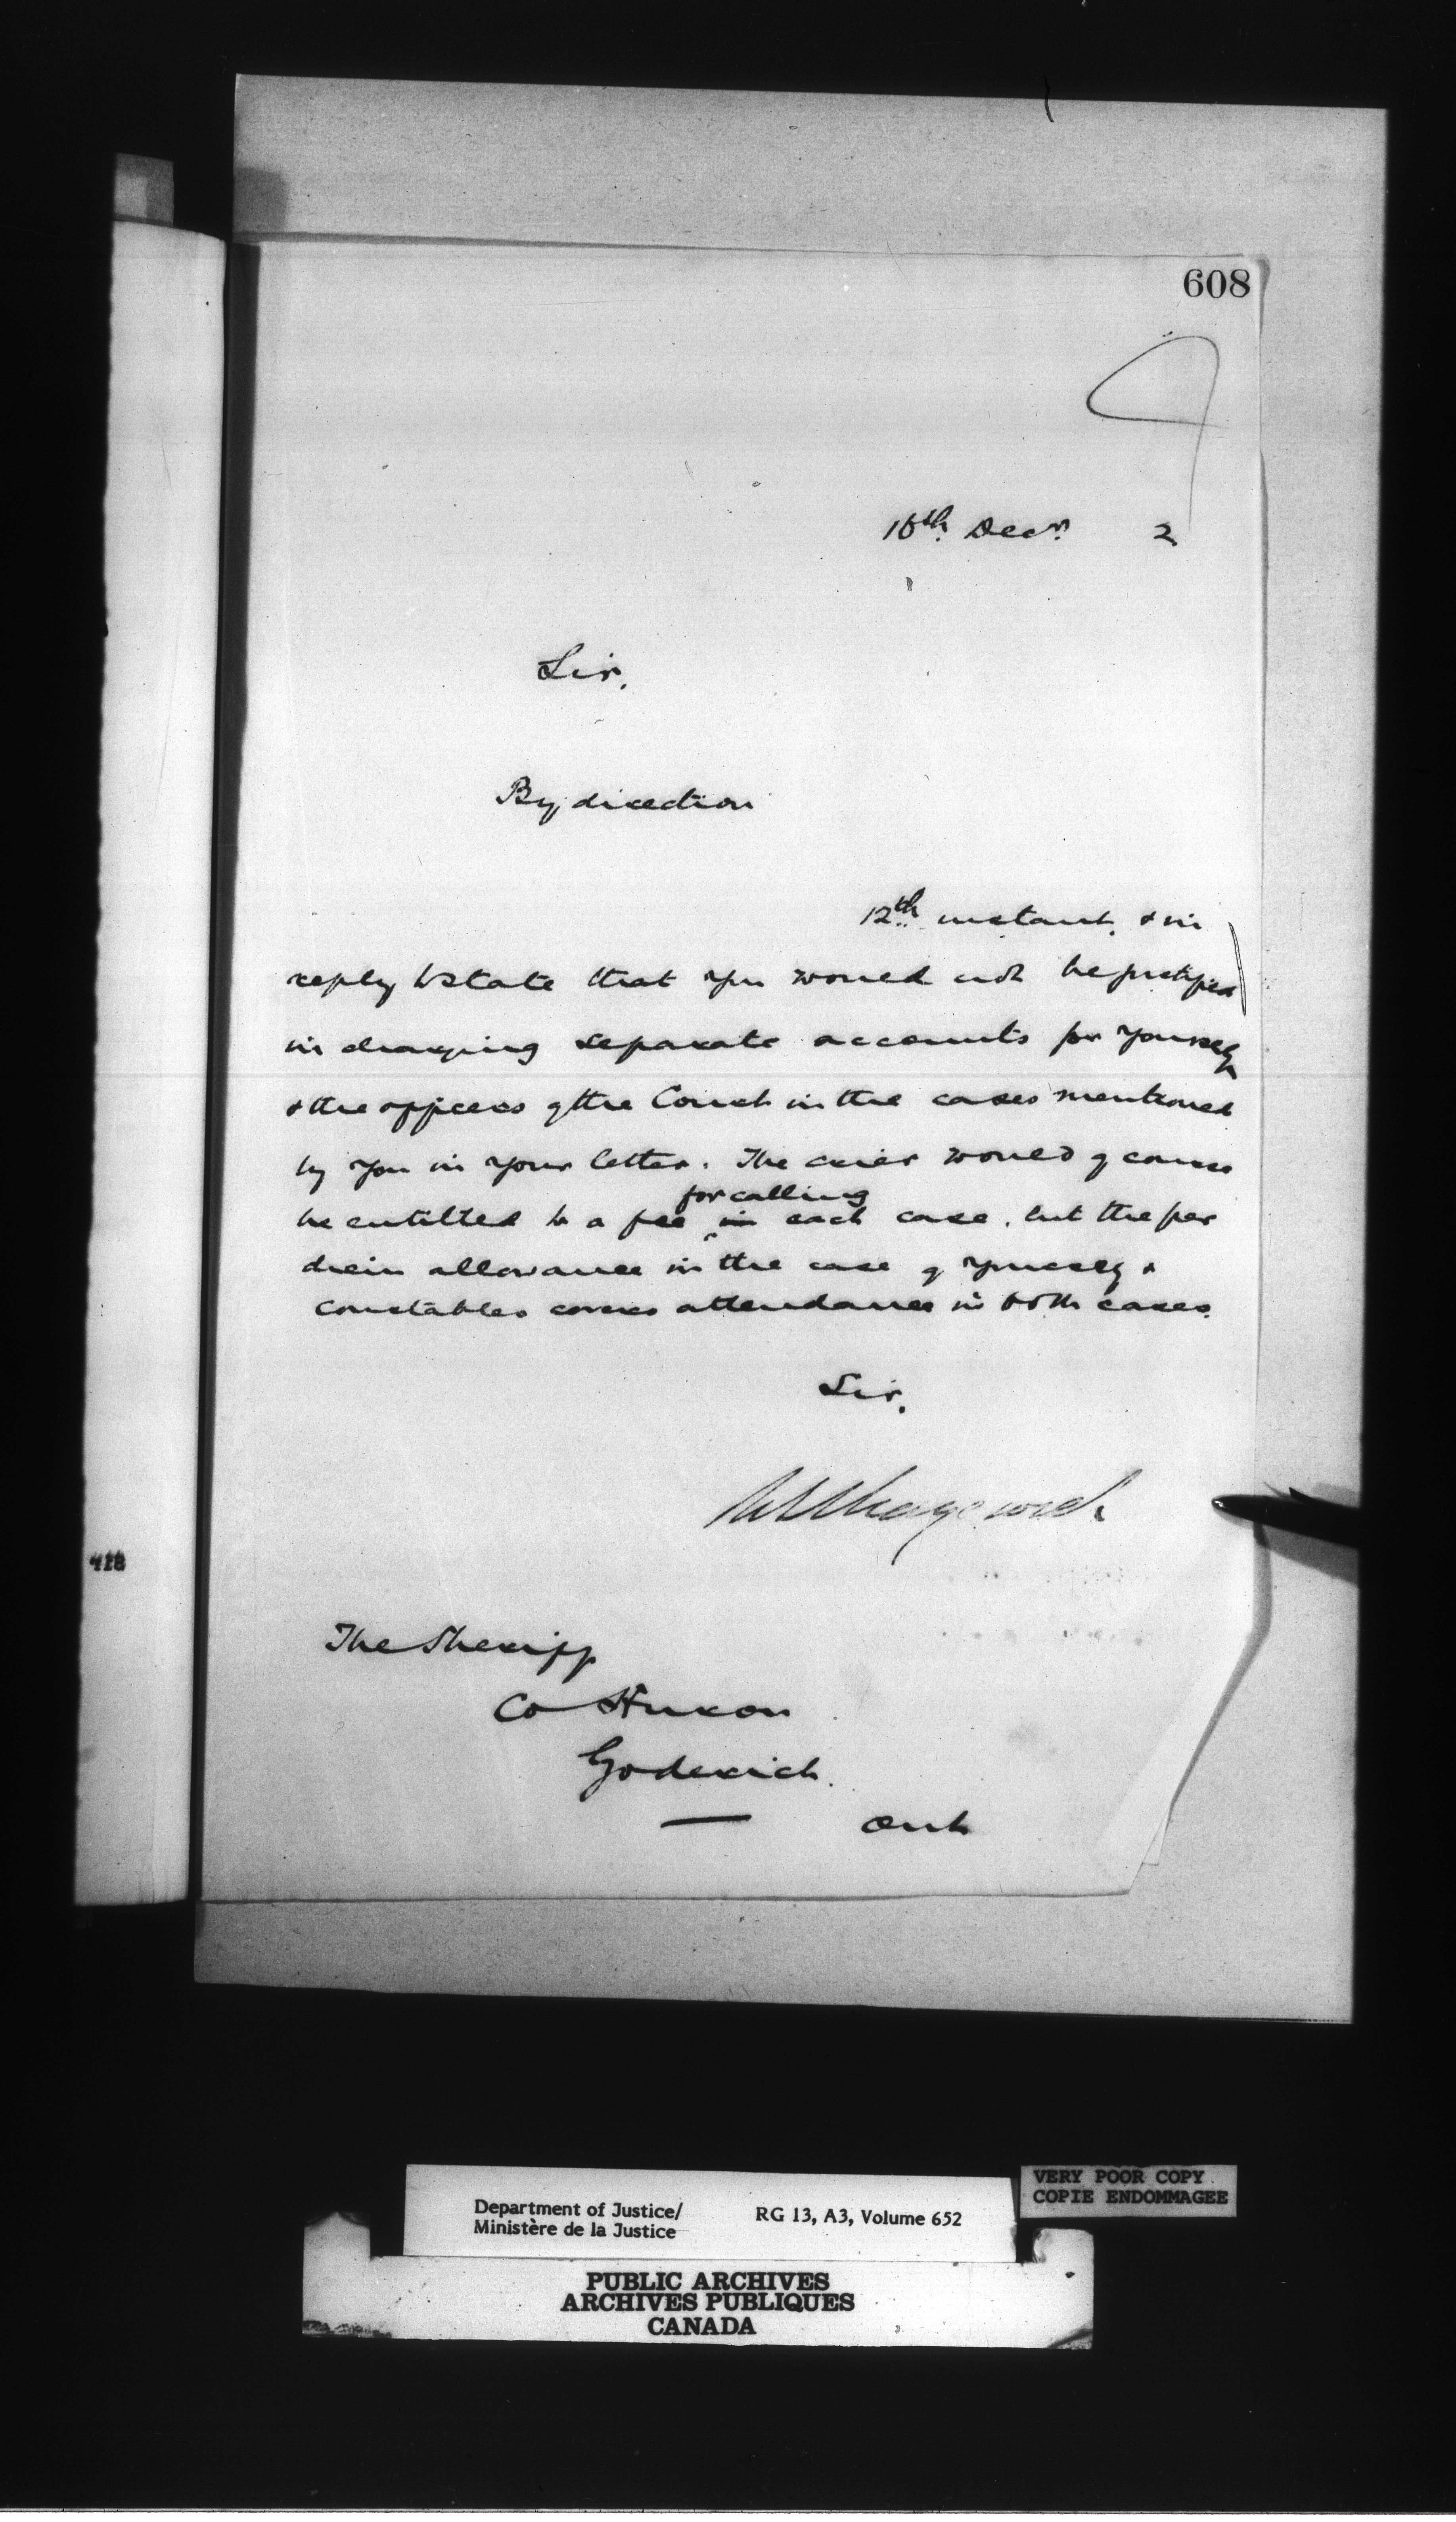 608
Decr. 2
Sir,
By direction
12th instant, & in
reply to state that you would not be justified
in charging separate accounts for yourself
& the officers of the Court in the cases mentioned
by you in your letter. The crier would of course
for calling
be entitled to a fee in each case, but the per
diem allowance in the case of yourself &
constables covers attendance in both cases.
Sir,
The Sheriff
Co Huron
Goderich.
Ont
418
Department of Justice/
Ministère de la Justice
RG 13, A3, Volume 652
VERY POOR COPY
COPIE ENDOMMAGEE
PUBLIC ARCHIVES
ARCHIVES PUBLIQUES
CANADA